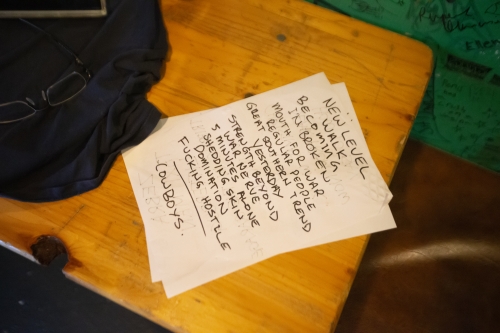 NEW LEVEL
WALK
BECOMING
I'M BROKEN
MOUTH FOR WAR
REGULAR PEOPLE
GREAT SOUTHERN TREND
YESTERDAY
STRENGTH BEYOND
WAR NERVE
5 MINUTES ALONE
SHEDDING SKIN
DOMINATION
FUCKING HOSTILE
COWBOYS.